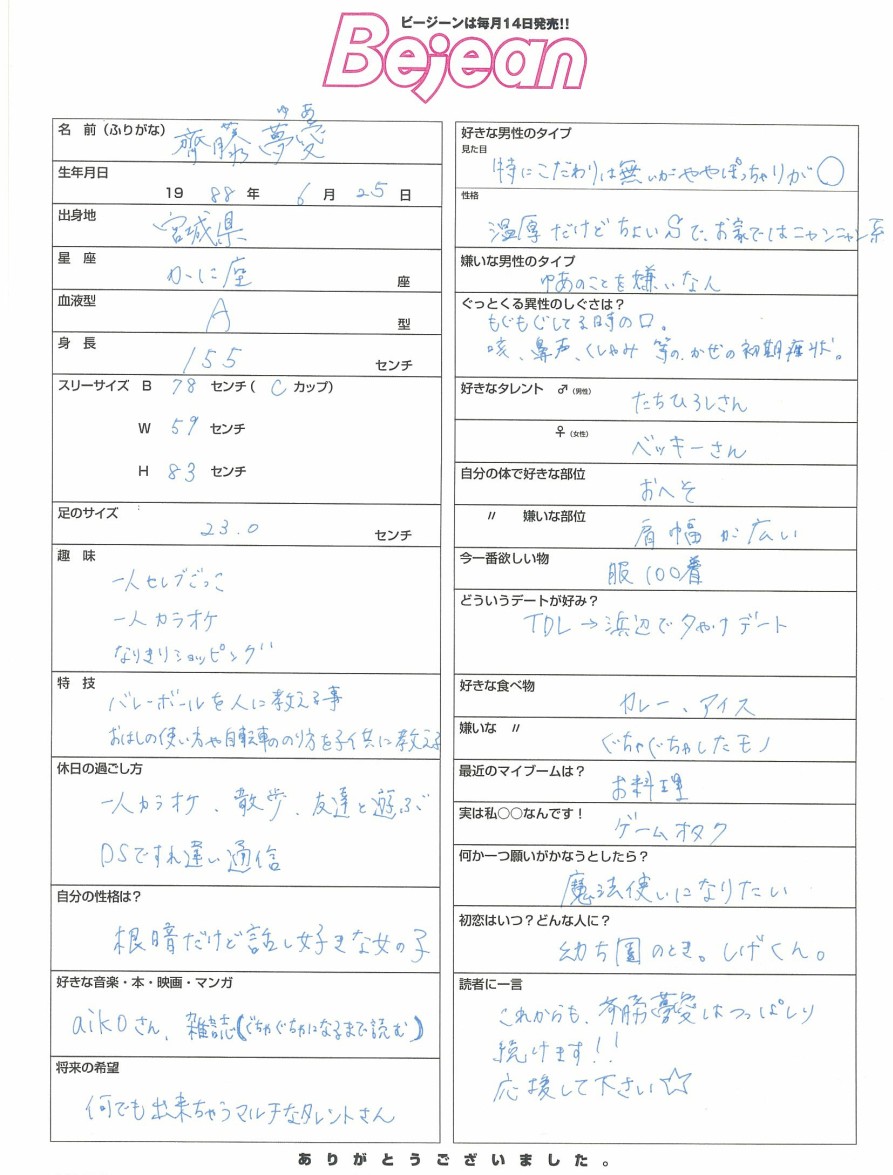 ビージーンは毎月14日発売!!
Bejean
名　前（ふりがな）
ゆあ
齊藤 夢愛
生年月日
19 88 年 6 月 25 日
出身地
宮城県
星　座
かに座 座
血液型
A 型
身　長
155 センチ
スリーサイズ B 78 センチ( C カップ)
W 59 センチ
H 83 センチ
足のサイズ
23.0 センチ
趣　味
一人セレブごっこ
一人カラオケ
なりきりショッピング
特　技
バレーボールを人に教える事
おはしの使い方や自転車ののり方を子供に教える
休日の過ごし方
一人カラオケ、散歩、友達と遊ぶ
DSですれ違い通信
自分の性格は？
根暗だけど話し好きな女の子
好きな音楽・本・映画・マンガ
aikoさん、雑誌(ぐちゃぐちゃになるまで読む)
将来の希望
何でも出来ちゃうマルチなタレントさん
好きな男性のタイプ
見た目
特にこだわりは無いがややぽっちゃりが○
性格
温厚だけどちょいSで、お家ではニャンニャン系
嫌いな男性のタイプ
ゆあのことを嫌いなん
ぐっとくる異性のしぐさは？
もぐもぐしてる時の口。
咳、鼻声、くしゃみ 等の、かぜの初期症状。
好きなタレント ♂（男性）
たちひろしさん
♀（女性）
ベッキーさん
自分の体で好きな部位
おへそ
〃　嫌いな部位
肩幅が広い
今一番欲しい物
服100着
どういうデートが好み？
TDL→浜辺で夕やけデート
好きな食べ物
カレー、アイス
嫌いな 〃
ぐちゃぐちゃしたモノ
最近のマイブームは？
お料理
実は私〇〇なんです！
ゲームオタク
何か一つ願いがかなうとしたら？
魔法使いになりたい
初恋はいつ？どんな人に？
幼ち園のとき。しげくん。
読者に一言
これからも、斉藤夢愛はつっぱしり
続けます!!
応援して下さい☆
ありがとうございました。